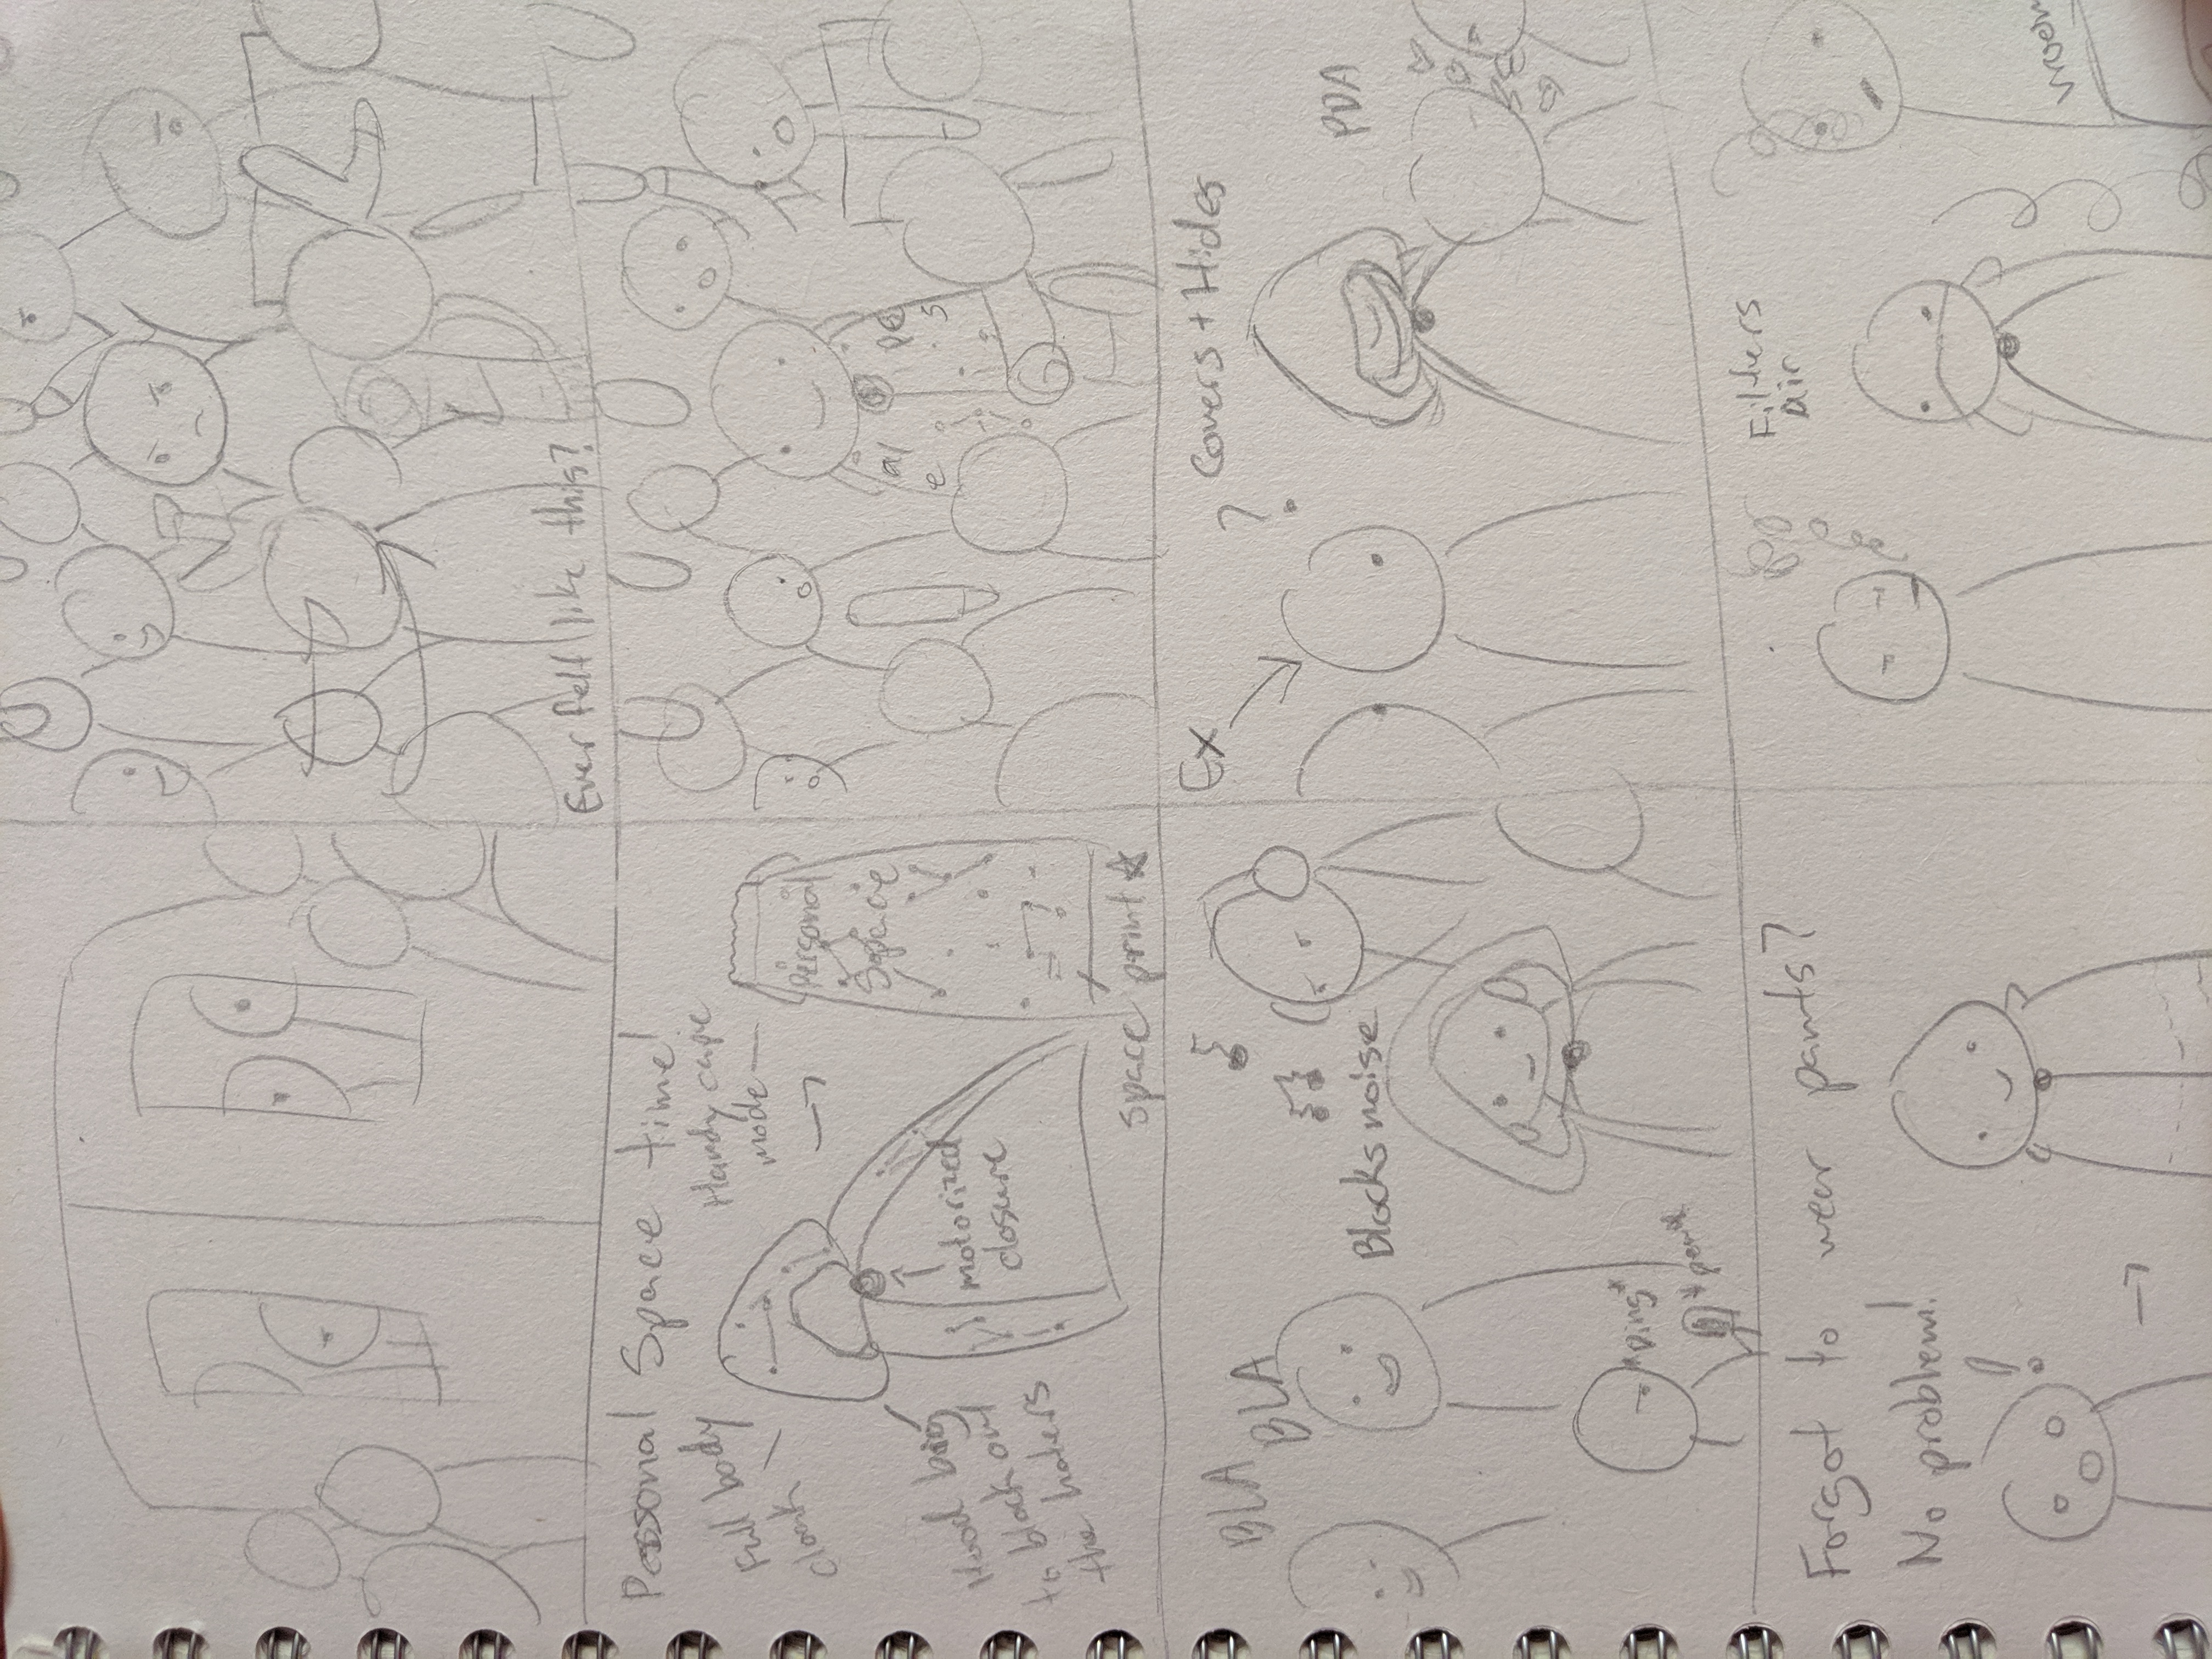 Ever felt like this?
Personal Space time!
Full body
cloak
Handy cape
mode
Personal
Space
Hood
to block out
the haters
motorized
closure
space print
al pe
e s
BLA
BLA
Blocks noise
*Ding*
*pew*
Ex
?
Covers + Hides
PDA
Forgot to wear pants?
No problem!
!
Filters
Air
vroom